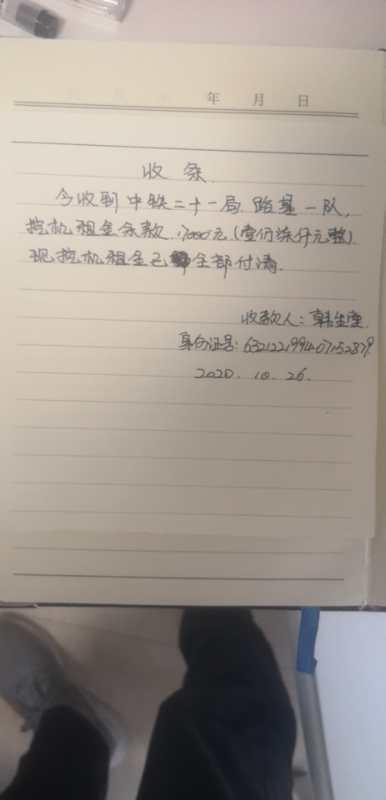 年 月 日
收条
今收到中铁二十一局路基一队,
挖机租金余款 17000元(壹仟柒仟元整)
现挖机租金已全部付清.
收款人:韩生
身份证号:
2020.10.26.